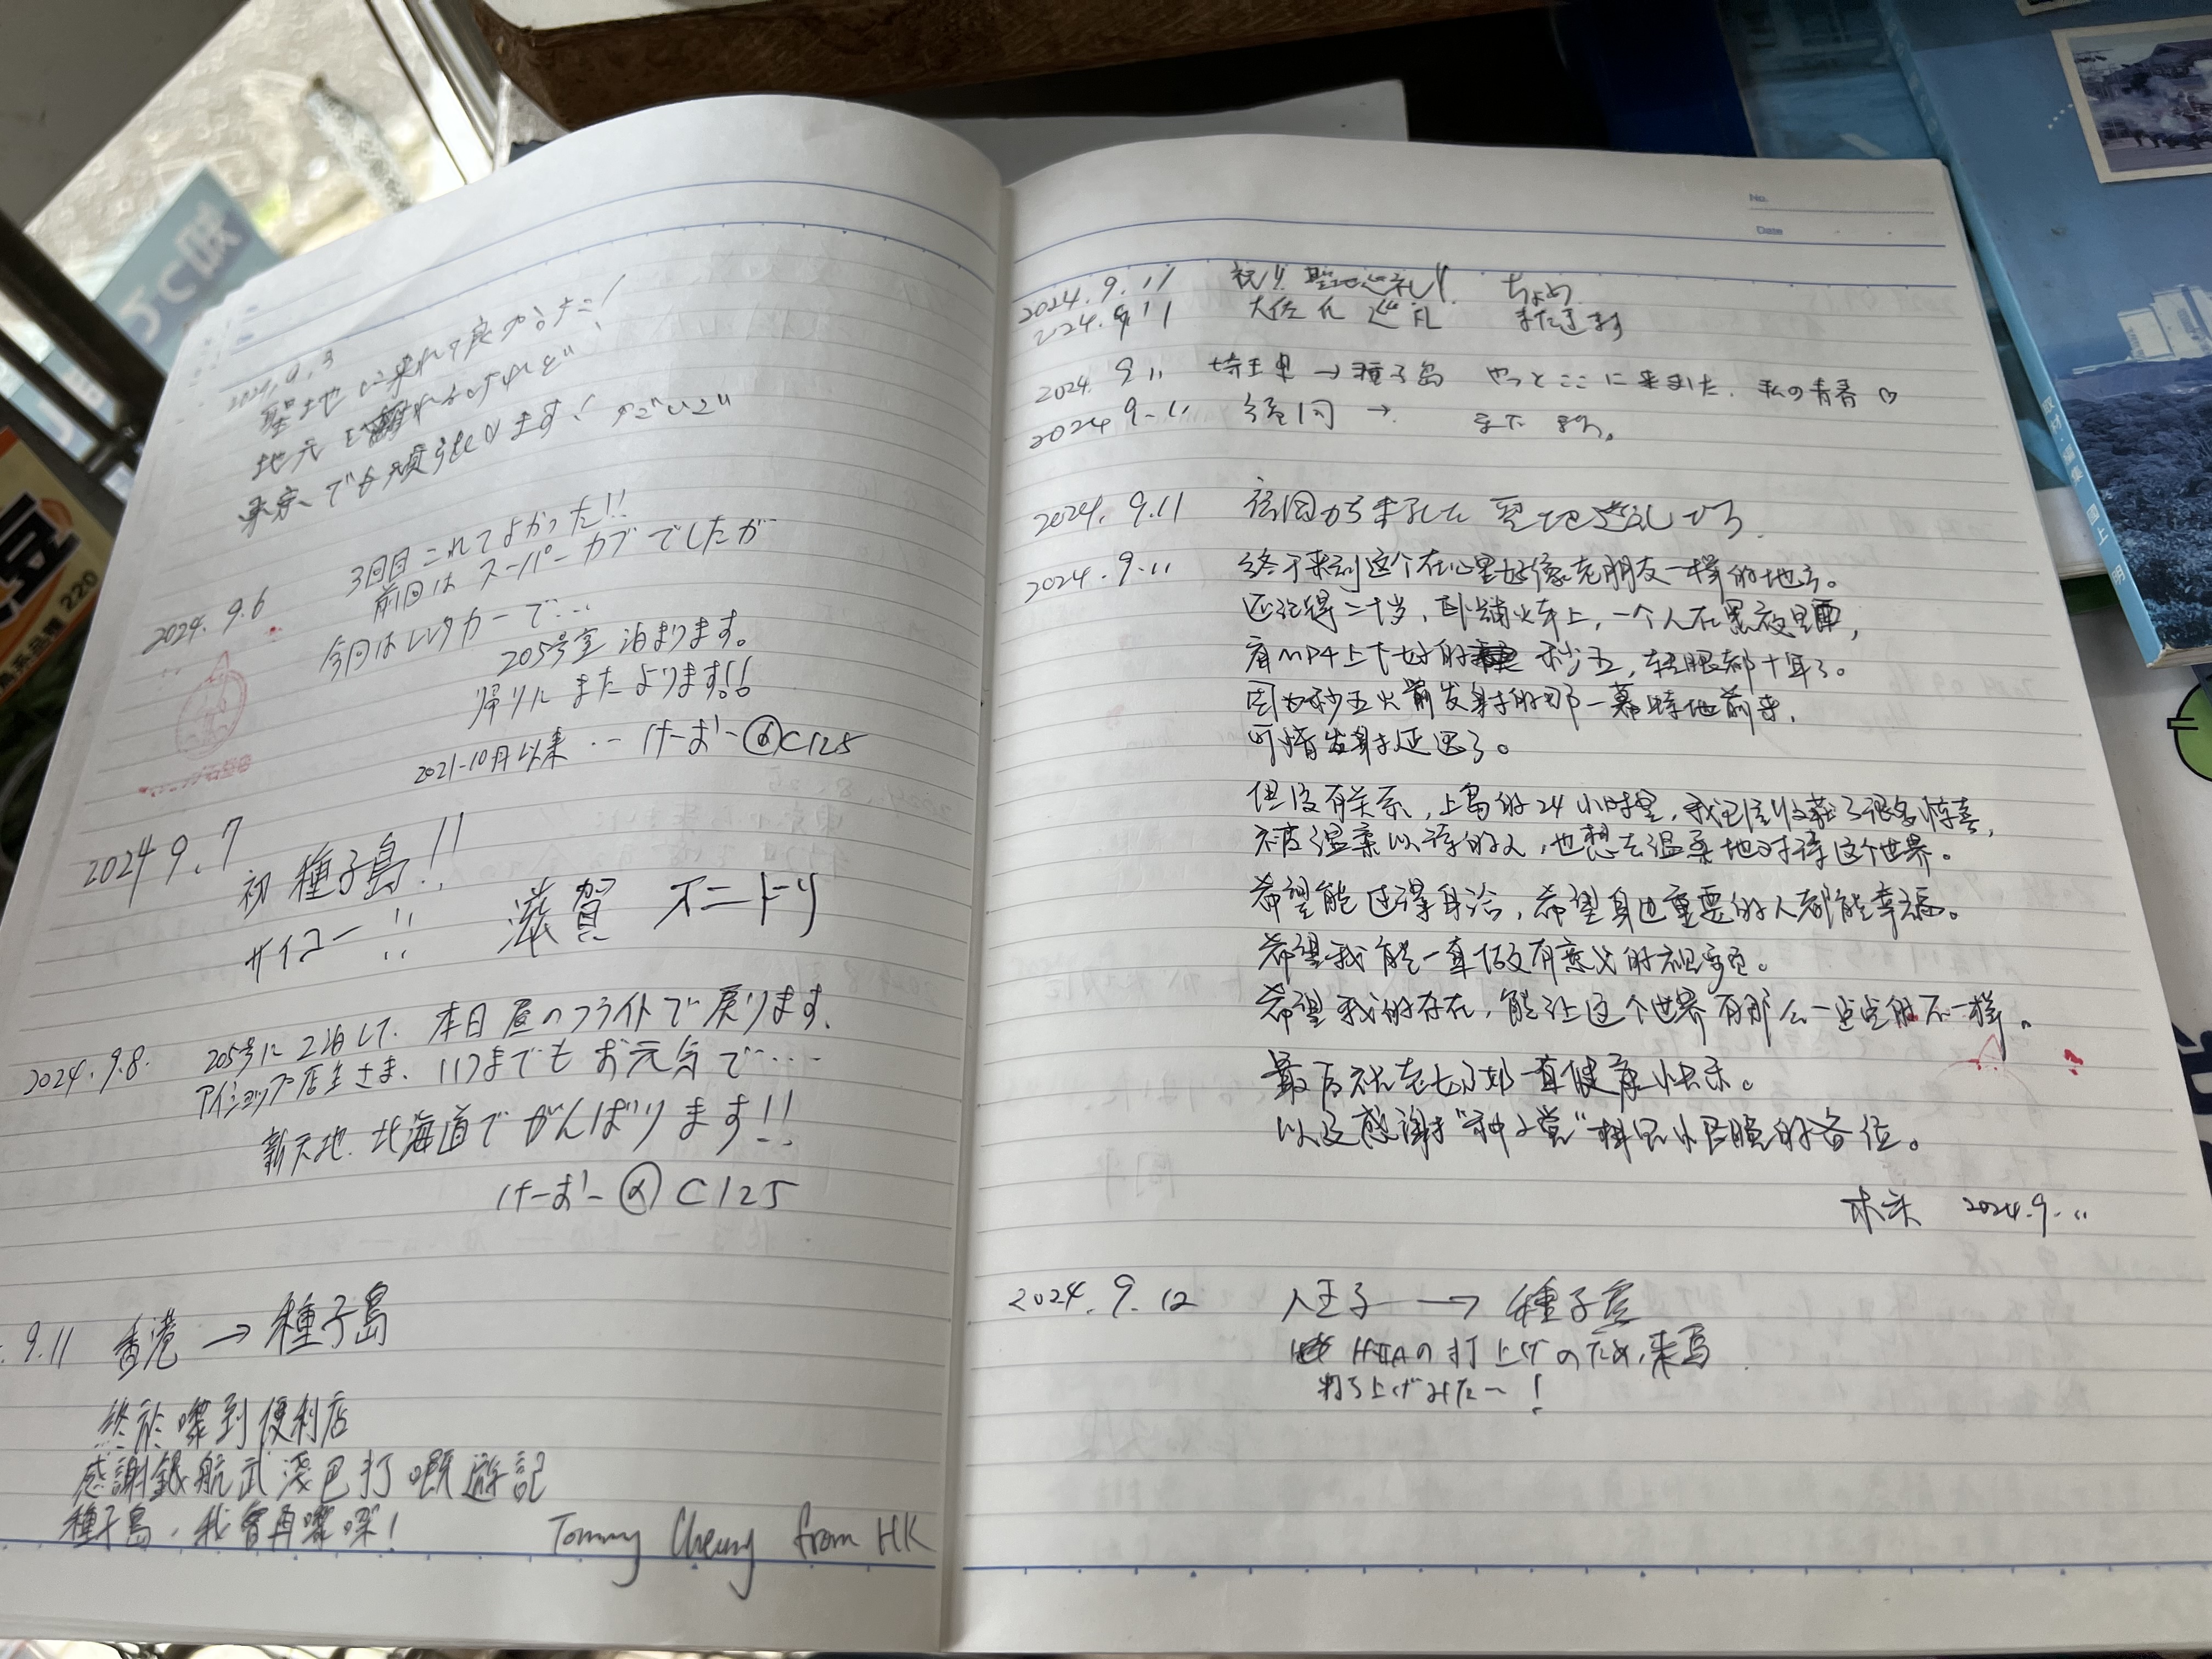 2024.9.3
聖地に来れて良かった!
地元を離れるけれど
東京でも頑張ります!
2024.9.6
3回目 これてよかった!!
前回は スーパーカブでしたが
今回はレンタカーで…
205号室 泊まります。
帰りに またよります!!
2021-10月以来 ‥ けーおー C125
2024 9.7
初 種子島!!
サイコー!!
滋賀 オニトリ
2024.9.8.
205号に 2泊して、本日 昼のフライトで戻ります。
アイショップ店主さま、いつまでもお元気で‥‥
新天地、北海道でがんばります!!
けーおー C125
. 9.11 香港 → 種子島
終於嚟到便利店
感謝銀航武淺巴打嘅遊記
種子島,我會再嚟㗎!
Tommy Cheung from HK
No.
Date
2024.9.11 祝!! 聖地巡礼!! ちょめ
2024.9.11 巡礼 またきます
2024. 9.11 埼玉県 → 種子島 やっとここに来ました. 私の青春♡
2024 9.11 福岡 →
2024. 9.11 福岡から来ました 聖地巡礼
2024.9.11 终于来到这个在心里好像老朋友一样的地方。
还记得二十岁,卧铺火车上,一个人在黑夜里,
看MP4上下好的 秒五,转眼都十年了。
因为秒五火箭发射的那一幕特地前来,
可惜发射延迟了。
但没有关系,上岛的24小时里,我已经收获了很多惊喜,
被温柔以待的人,也想去温柔地对待这个世界。
希望能过得自洽,希望身边重要的人都能幸福。
希望我能一直做有意义的视频。
希望我的存在,能让这个世界有那么一点点的不一样。
最后祝老七 一直健康快乐。
以及感谢“种子堂” 的各位。
2024.9.11
2024. 9. 12 八王子 → 種子島
HIIAの打上げのため,来島
打ち上げみたー!
220